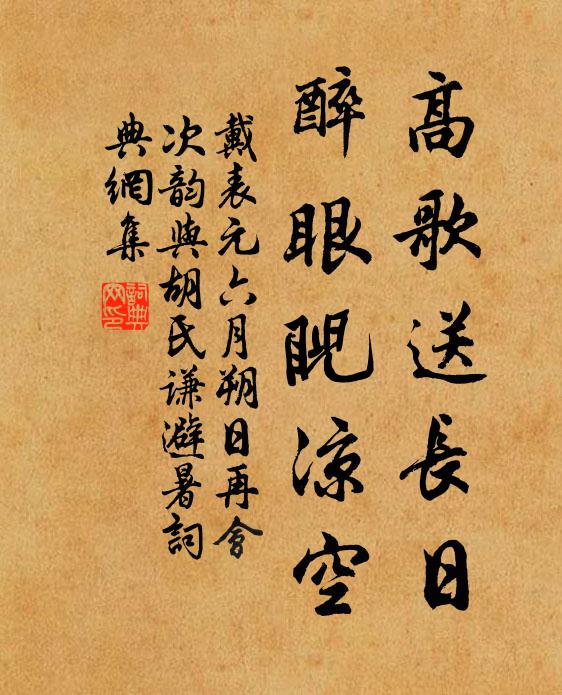 高歌送長日
醉眼睨涼空
戴表元六月朔日再會
次韵與胡氏谦避暑詞
典網集
詞典網印